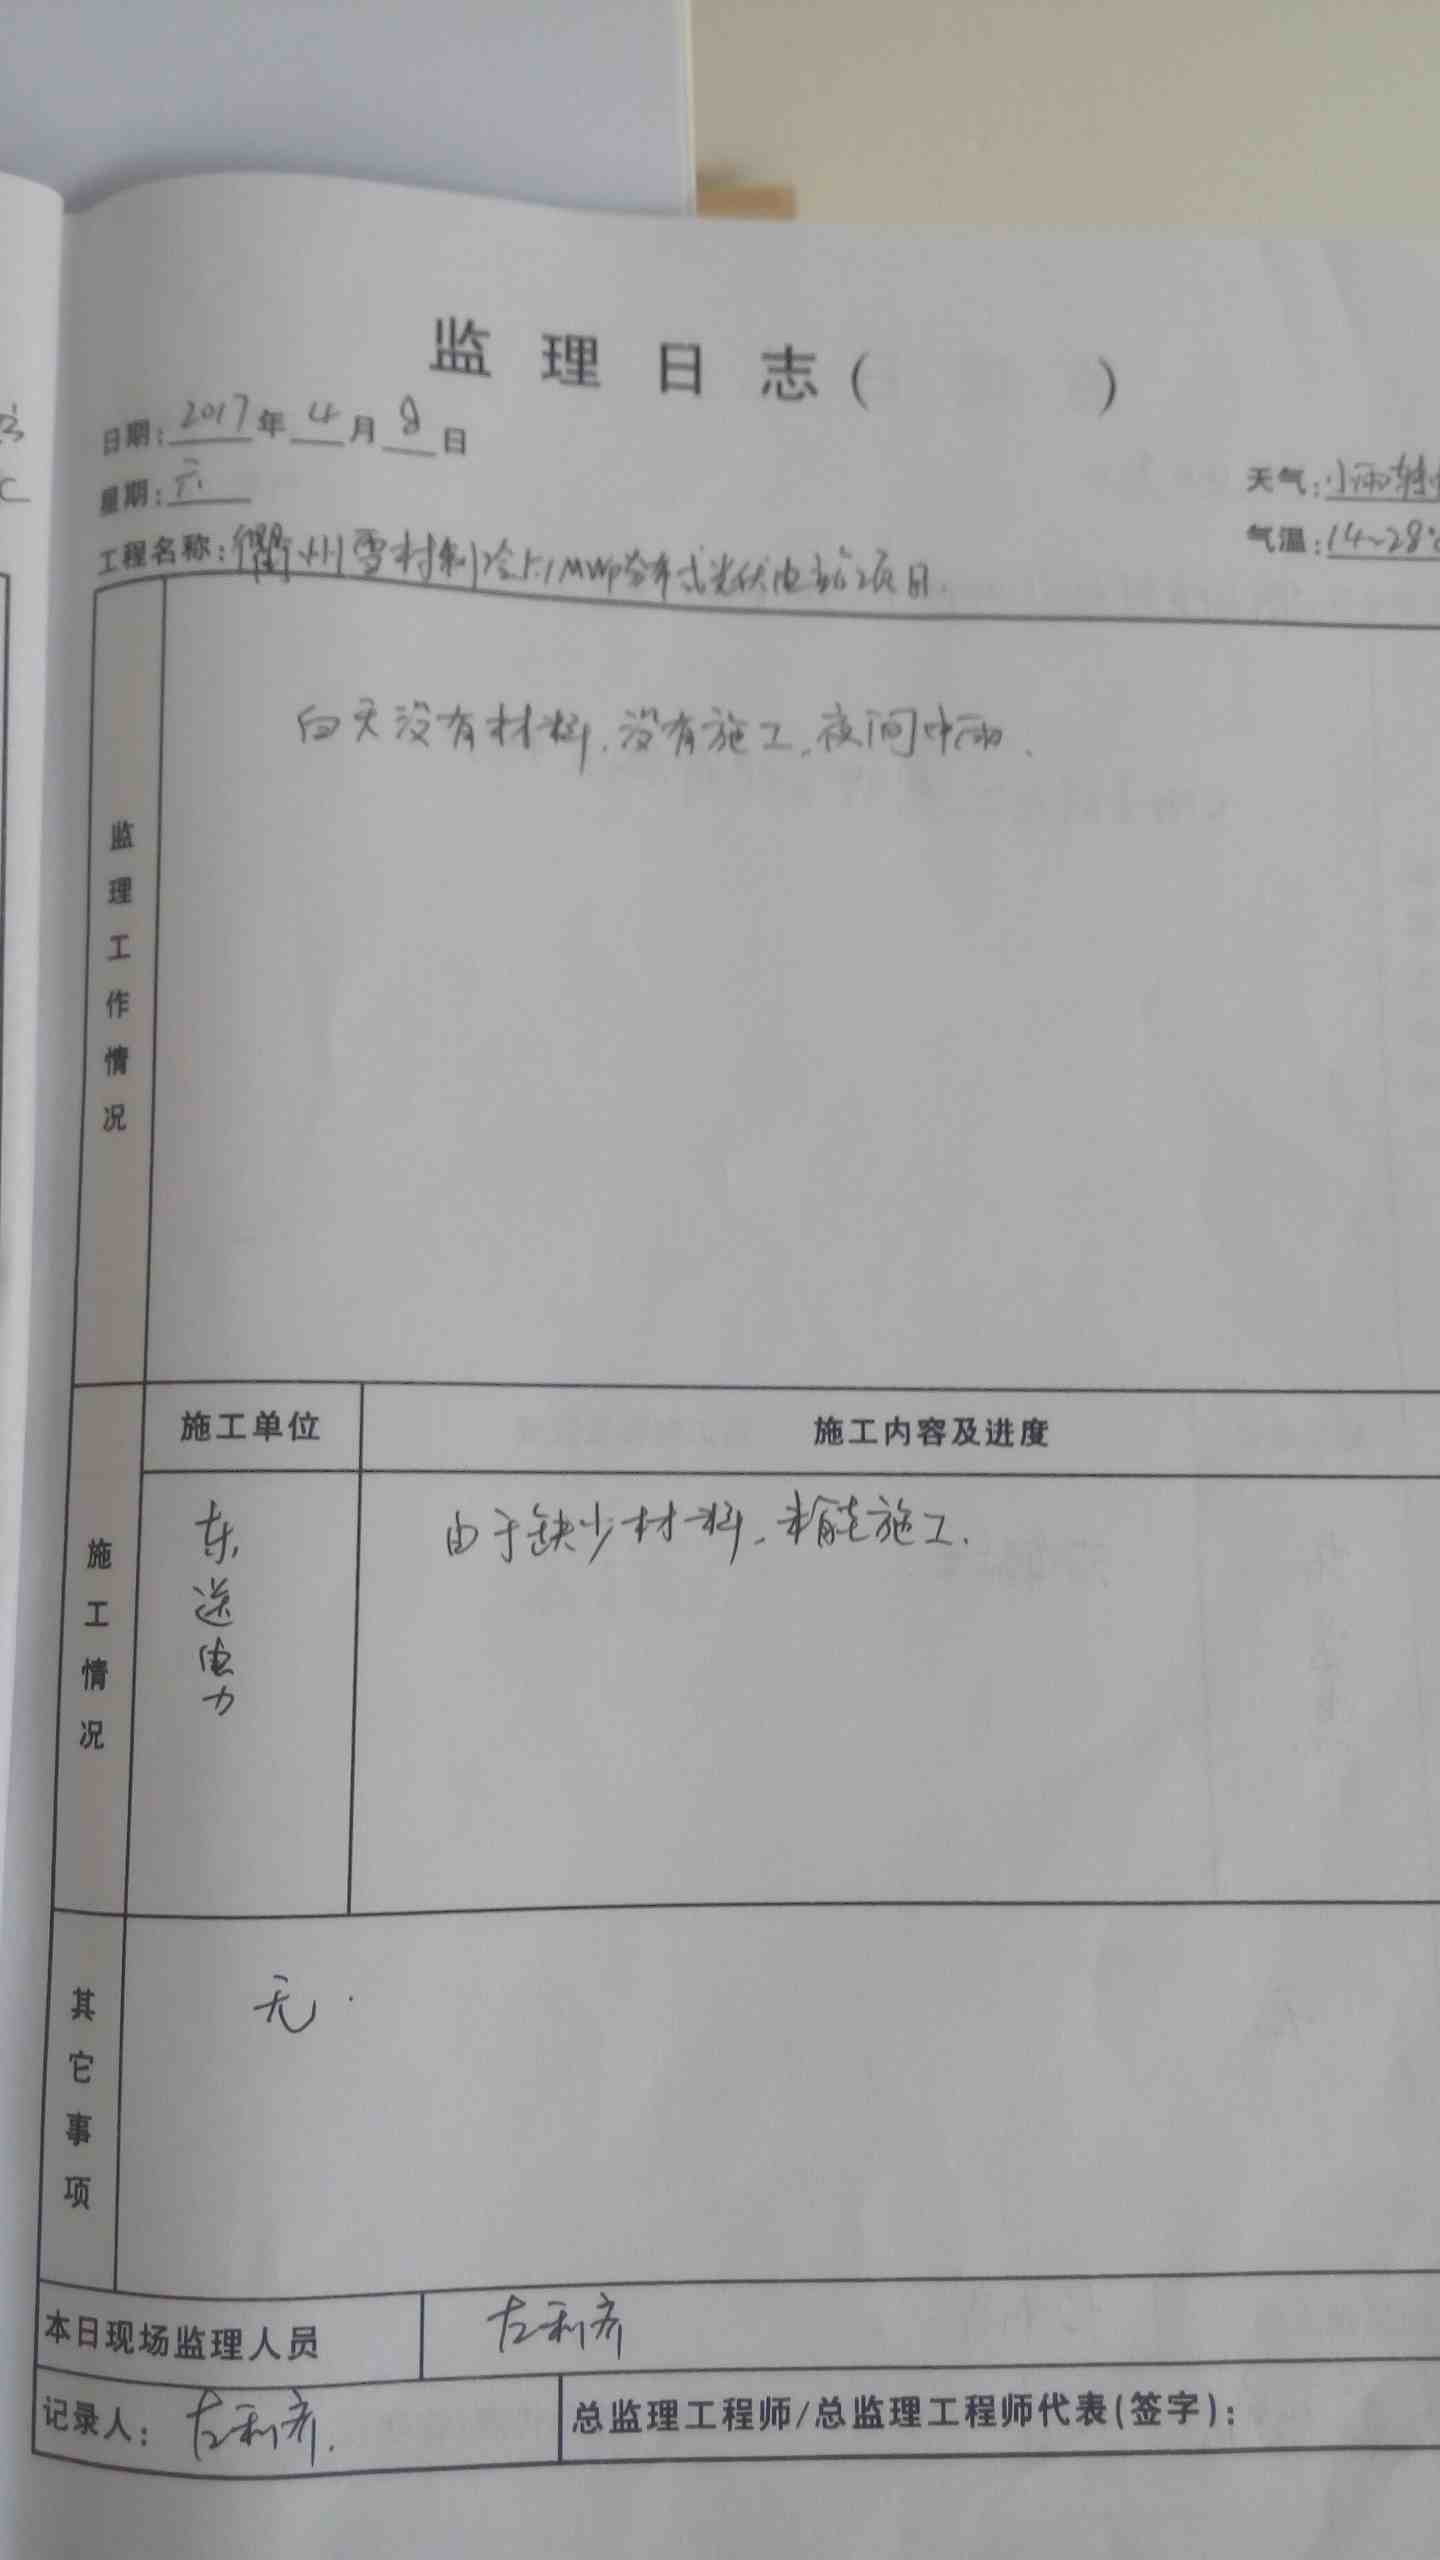 监理日志（ ）
日期：2017年4月8日
星期：六
天气：小雨转
气温：14~28℃
工程名称：衢州雪村制冷5.1MWp分布式光伏电站项目
监理工作情况
白天没有材料，没有施工，夜间中雨．
施工情况
施工单位 施工内容及进度
东送电力
由于缺少材料，未能施工．
其它事项
无．
本日现场监理人员 左利齐
记录人：左利齐． 总监理工程师/总监理工程师代表（签字）：